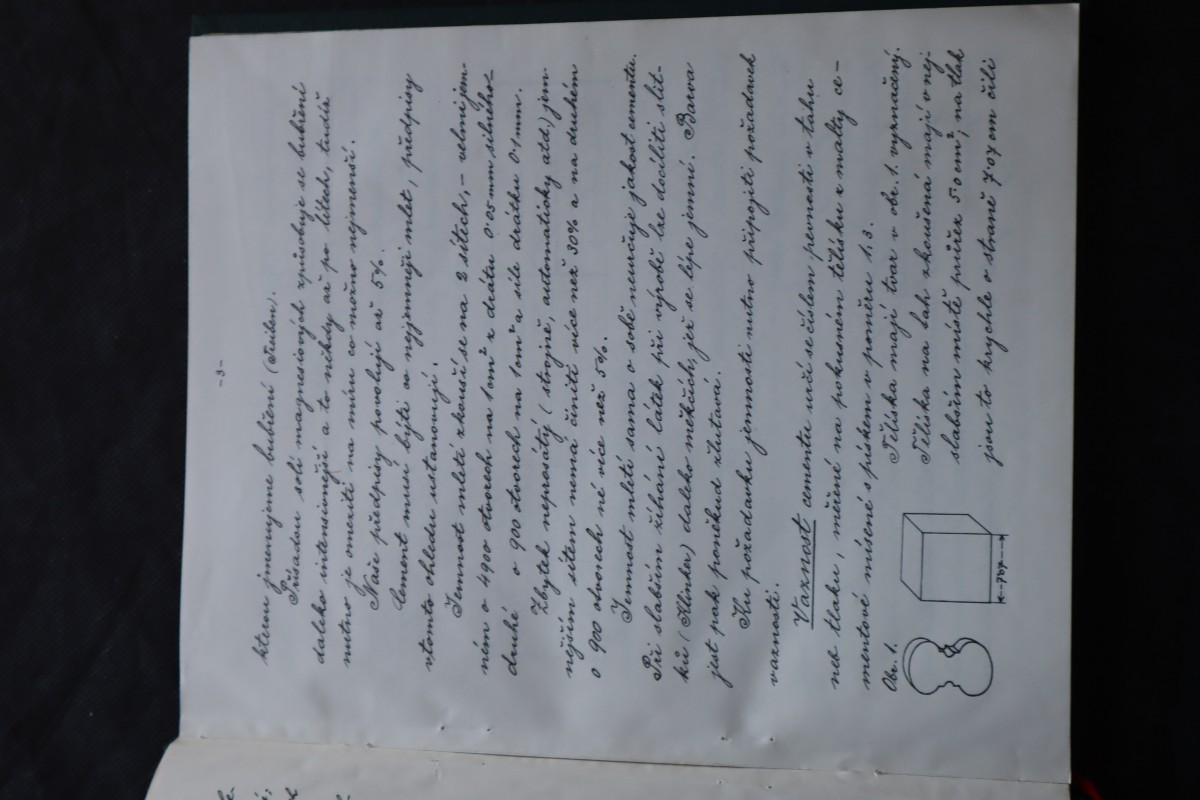 -3-
kterou jmenujeme bubření (Treiben).
Přísadou solí magnesiových způsobuje se bubření
daleko intensivnější a to někdy až po létech, tudíž
nutno je omeziti na míru co možno nejmenší.
Naše předpisy povolují až 5%.
Cement musí býti co nejjemněji mlet, předpisy
v tomto ohledu ustanovují.
Jemnost mletí zkouší se na 2 sítech, – velmi jem-
ném o 4900 otvorech na 1 cm² z drátu 0·05 mm silného –
druhé o 900 otvorech na 1 cm² a síle drátku 0·1 mm.
Zbytek neprosátý (strojně, automaticky atd.) jem-
nějším sítem nemá činiti více než 30% a na druhém
o 900 otvorech né více než 5%.
Jemnost mletí sama o sobě neurčuje jakost cementu.
Při slabším žíhání látek při výrobě lze docíliti slit-
ků (Klinker) daleko měkčích, jež se lépe jemní. Barva
jest pak poněkud žlutavá.
Ku požadavku jemnosti nutno připojiti požadavek
vaznosti.
Vaznost cementu určí se číslem pevnosti v tahu
neb tlaku, měřené na pokusném tělísku z malty ce-
mentové mísené s pískem v poměru 1:3.
Obr. 1.
Tělíska mají tvar v obr. 1. vyznačný.
Tělíska na tah zkoušená mají v nej-
slabším místě průřez 5 cm², na tlak
jsou to krychle o straně 7·07 cm čili
7·07